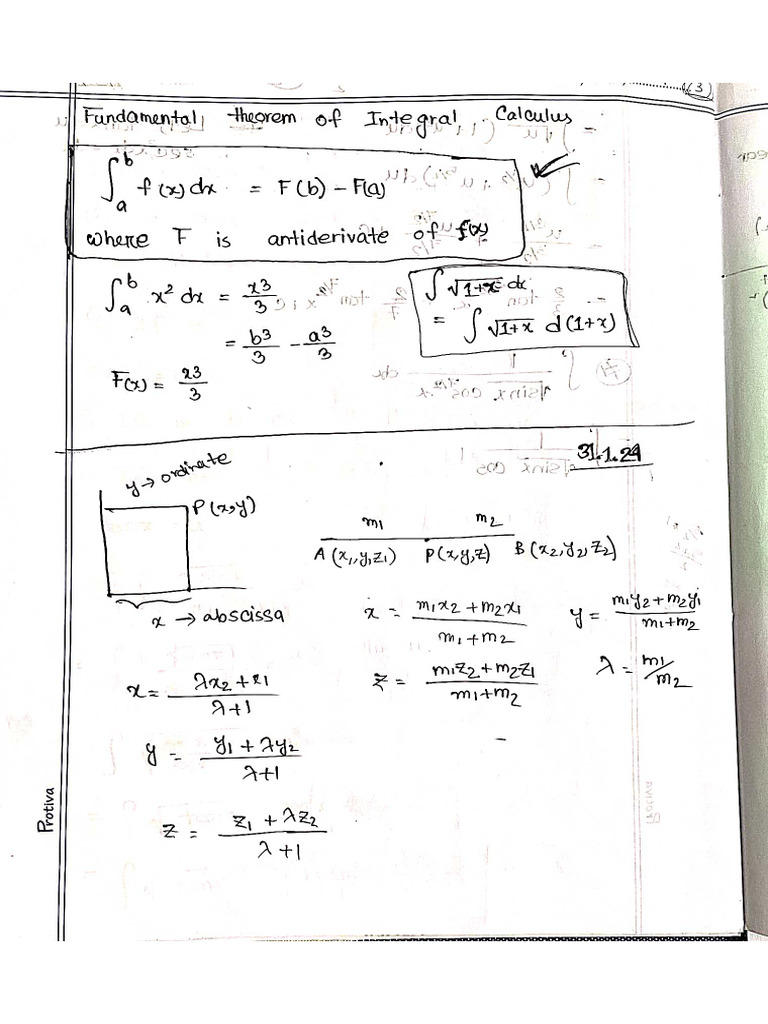 (3)
Fundamental theorem of Integral Calculus
∫_a^b f(x) dx = F(b) - F(a)
where F is antiderivate of f(x)
∫_a^b x² dx = x³/3
= b³/3 - a³/3
F(x) = x³/3
∫ √(1+x) dx
= ∫ √(1+x) d(1+x)
31.1.24
y → ordinate
P(x,y)
x → abscissa
m₁ m₂
A(x₁,y₁,z₁) P(x,y,z) B(x₂,y₂,z₂)
x = (m₁x₂+m₂x₁)/(m₁+m₂) y = (m₁y₂+m₂y₁)/(m₁+m₂)
z = (m₁z₂+m₂z₁)/(m₁+m₂) λ = m₁/m₂
x = (λx₂+x₁)/(λ+1)
y = (y₁+λy₂)/(λ+1)
z = (z₁+λz₂)/(λ+1)
Protiva